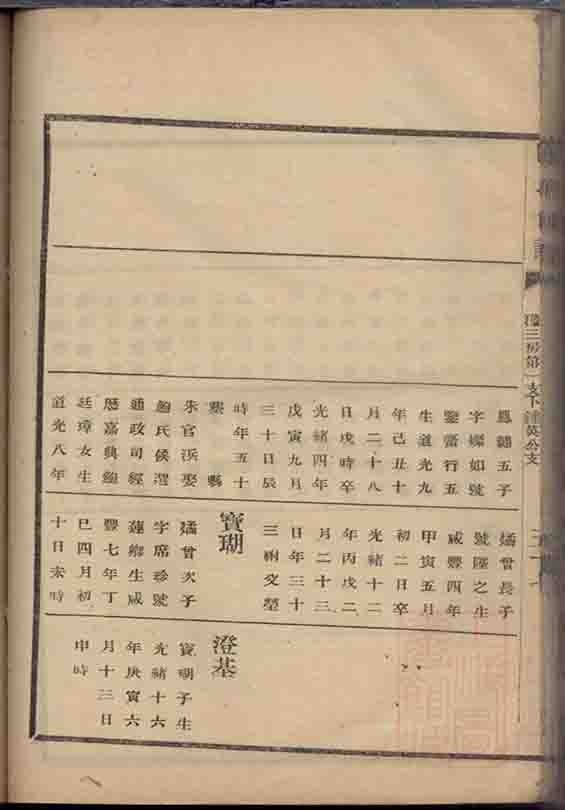 五子
字燦如號
鑒齋行五
生道光九
年己丑十
月二十八
日戌時卒
光緒四年
戊寅九月
三十日辰
時年五十
葬縣
朱官浜娶
鮑氏候選
通政司經
歷嘉典鮑
廷璋女生
道光八年
燏曾長子
號匯之生
咸豐四年
甲寅五月
初二日卒
光緒十二
年丙戌二
月二十三
日年三十
三祔父塋
寶瑚
燏曾次子
字席珍號
蓮鄉生咸
豐七年丁
巳四月初
十日亥時
澄基
寶瑚子生
光緒十六
年庚寅六
月十三日
申時